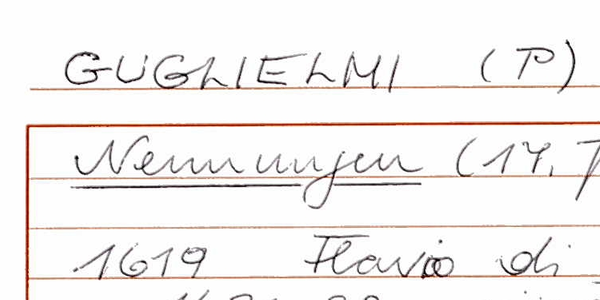 GUGLIELMI (P)
Nennungen (17. J
1619 Flavio di